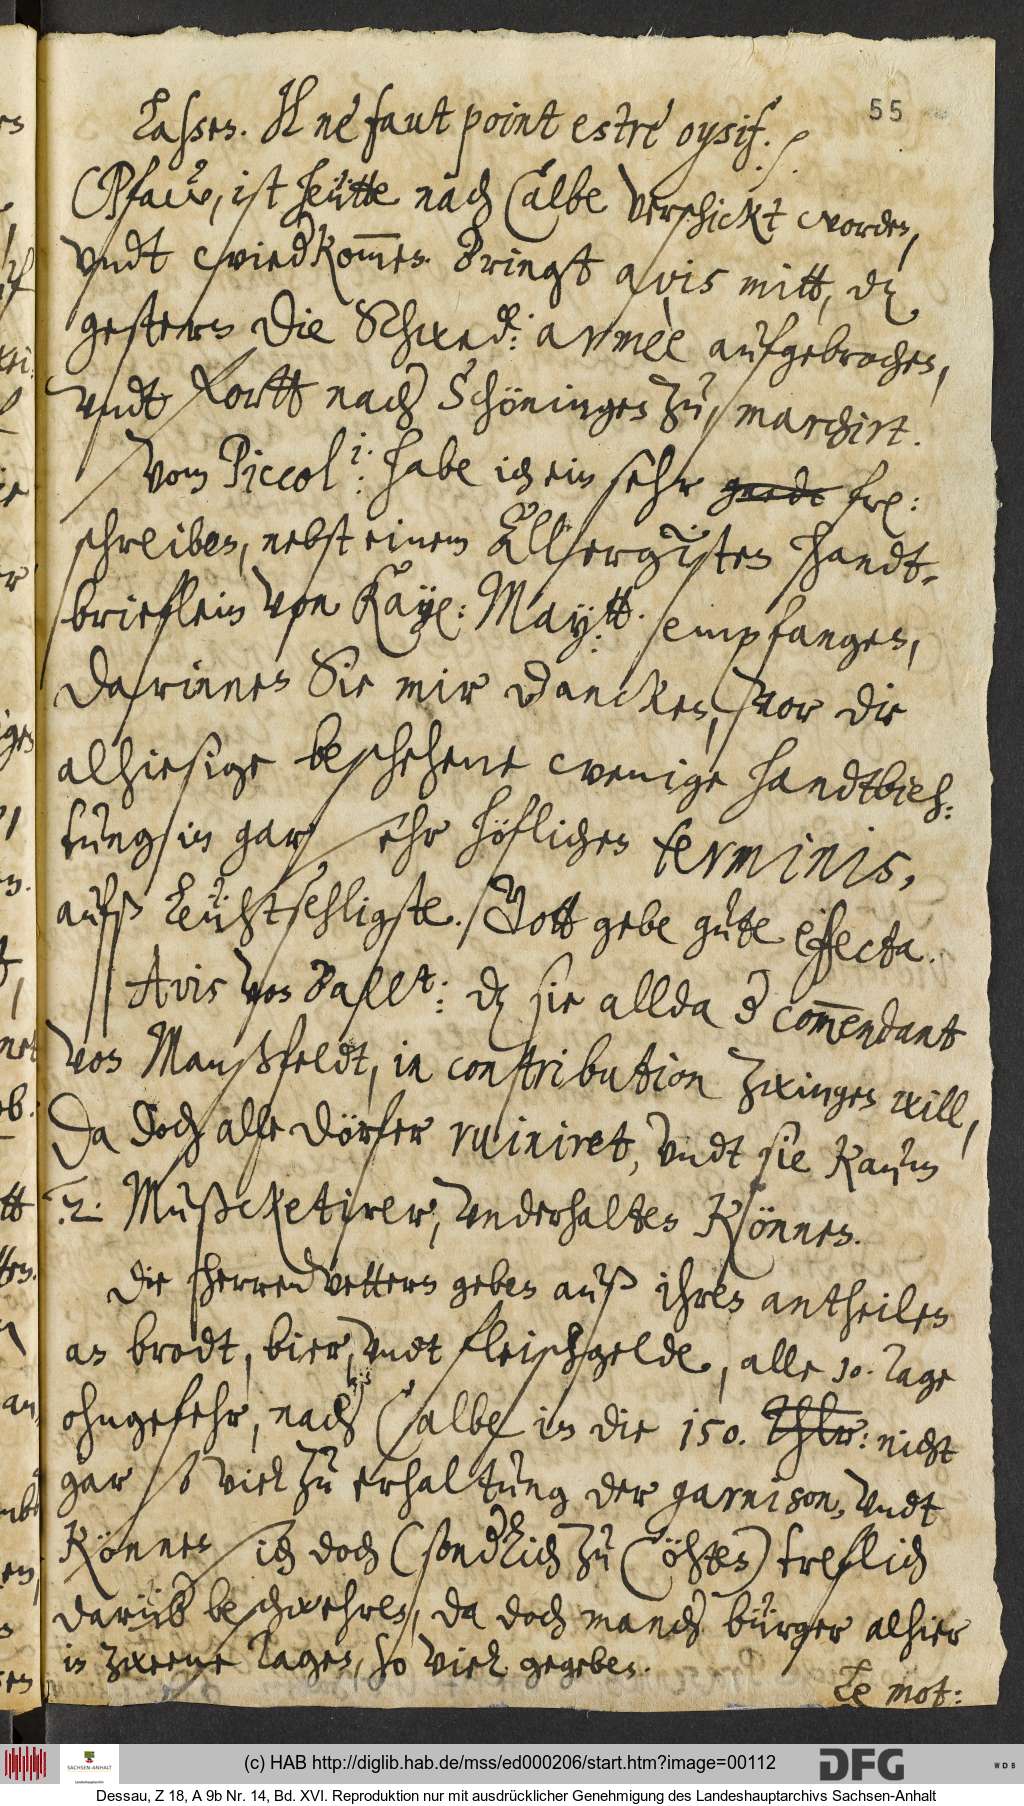 laßen. Il ne faut point estre oysif. /
55
Pfaw, ist heütte nach Calbe verschickt worden,
vndt wiederkommen. Bringt avis mitt, dz
gestern die Schwed: armèe aufgebrochen,
vndt fortt nach Schöningen zu, marchirt.
Vom Piccol: habe ich ein sehr frl:
schreiben, nebst einem Allergsten handt-
brieflein von Kayl: May: tt: empfangen,
darinnen Sie mir dancken, vor die
alhiesige beschehene wenige handtbieh:
tung in gar sehr höflichen terminis,
aufs leühtsehligste. Gott gebe gute effecta.
Avis von Ballst: dz sie allda der commendant
von Manßfeldt, in contribution zwingen will,
da doch alle dörfer ruiniret, vndt sie kaum
2. Mußcketirer, vnderhalten können.
Die herrenvettern geben auß ihren antheilen
an brodt, bier, vndt fleischgelde, alle 10. Tage
ohngefehr, nach Calbe in die 150. Thlr: nicht
gar so viel zu erhaltung der garnison, vndt
können sich doch (sonderlich zu Cöhten) treflich
darüber beschwehren, da doch mancher bürger alhier
in zweene Tagen, so viel gegeben.
Le mot:
(c) HAB http://diglib.hab.de/mss/ed000206/start.htm?image=00112
SACHSEN-ANHALT
DFG
WDB
Dessau, Z 18, A 9b Nr. 14, Bd. XVI. Reproduktion nur mit ausdrücklicher Genehmigung des Landeshauptarchivs Sachsen-Anhalt